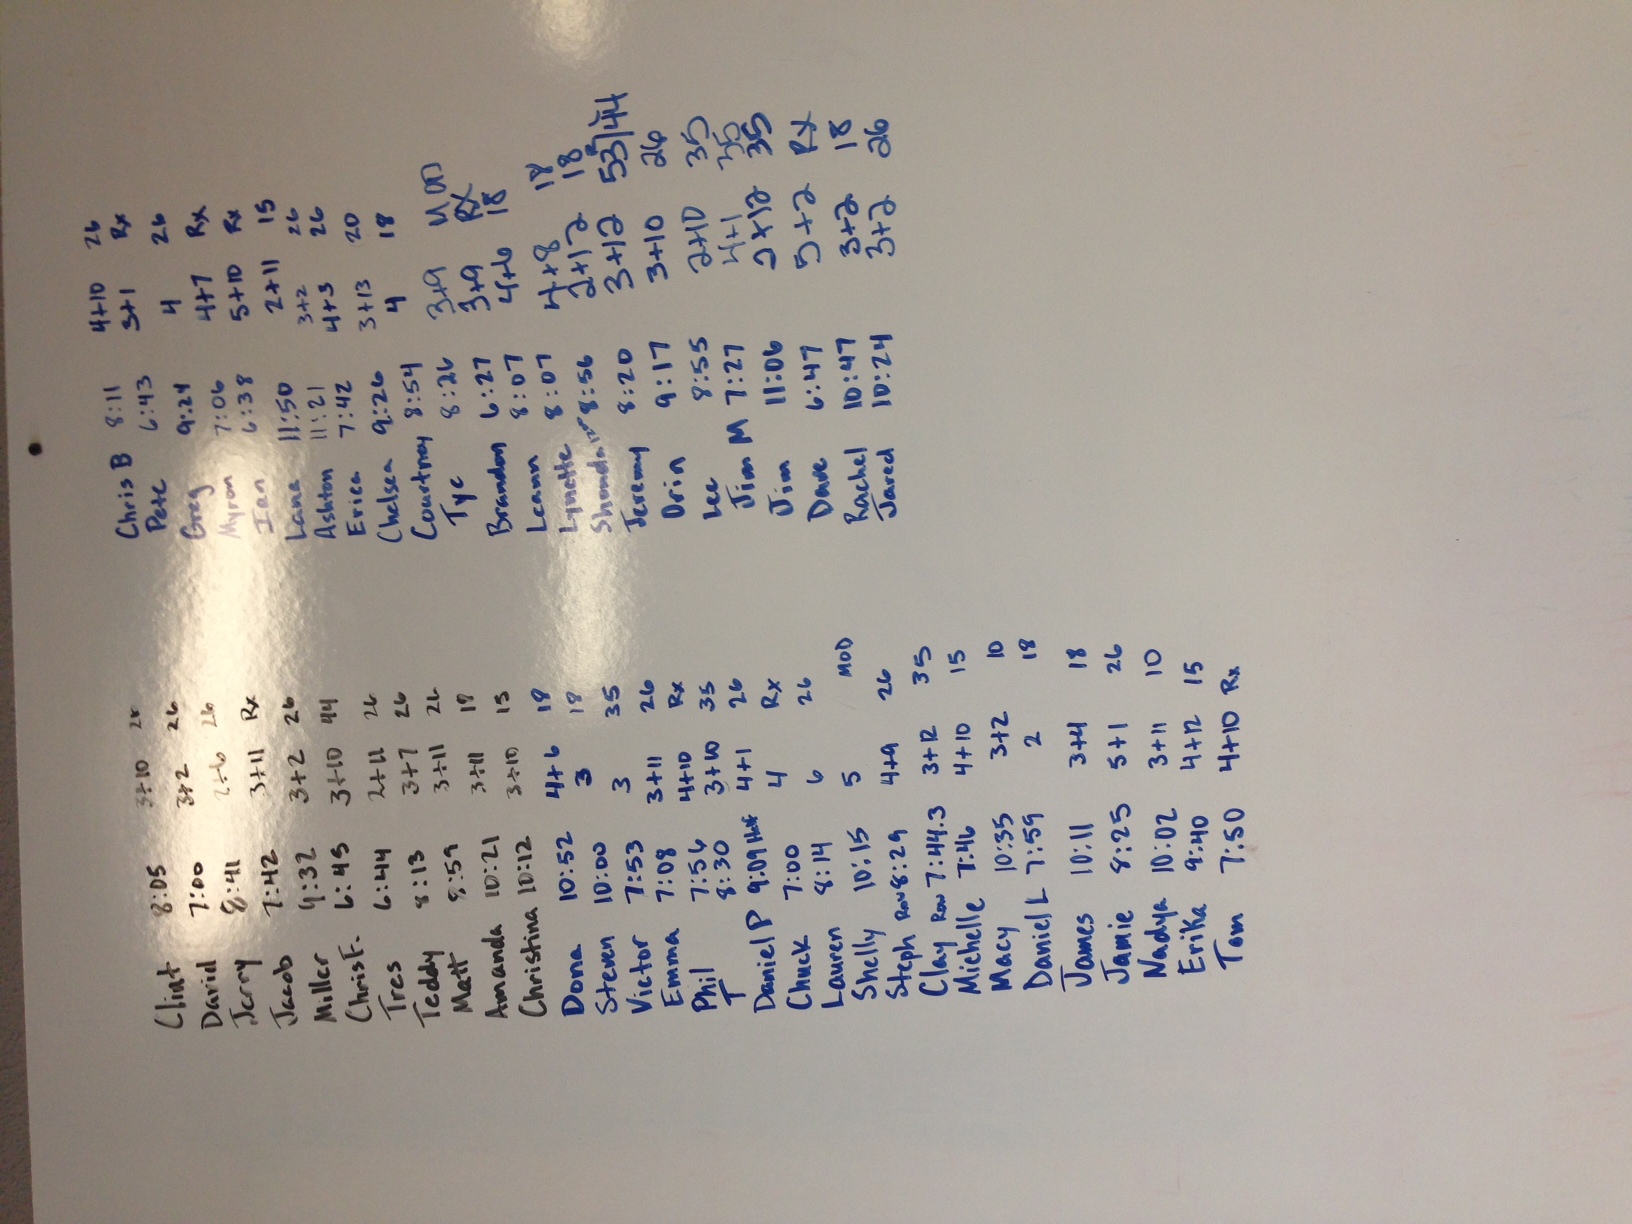 Clint 8:05 3+10 26
David 7:00 3+2 26
Jerry 8:41 2+6 26
Jacob 7:42 3+11 Rx
Miller 9:32 3+2 26
Chris F. 6:45 3+10 44
Tres 6:44 2+11 26
Teddy 8:13 3+7 26
Matt 8:59 3+11 26
Amanda 10:21 3+11 18
Christina 10:12 3+10 15
Dona 10:52 4+6 18
Steven 10:00 3 18
Victor 7:53 3 35
Emma 7:08 3+11 26
Phil 7:56 4+10 Rx
T 8:30 3+10 35
Daniel P 9:09 Half 4+1 26
Chuck 7:00 4 Rx
Lauren 8:14 6 26
Shelly 10:15 5 MOD
Steph Row 8:29 4+9 26
Clay Row 7:44.3 3+12 35
Michelle 7:46 4+10 15
Macy 10:35 3+2 10
Daniel L 7:59 2 18
James 10:11 3+4 18
Jamie 8:25 5+1 26
Nadya 10:02 3+11 10
Erika 9:40 4+12 15
Tom 7:50 4+10 Rx
Chris B 8:11 4+10 26
Pete 6:43 3+1 Rx
Greg 9:24 4 26
Myron 7:06 4+7 Rx
Ian 6:38 5+10 Rx
Lana 11:50 2+11 15
Ashton 11:21 3+2 26
Erica 7:42 4+3 26
Chelsea 9:26 3+13 20
Courtnay 8:54 4 18
Tyc 8:26 3+9 MOD
Brandon 6:27 3+9 RX
Leann 8:07 4+6 18
Lynette 8:07 4+8 18
Shonda 8:56 2+12 18
Jeremy 8:20 3+12 53/44
Orin 9:17 3+10 26
Lee 8:55 2+10 35
Jim M 7:27 4+1 35
Jim 11:06 2+12 35
Dave 6:47 5+2 RX
Rachel 10:47 3+2 18
Jared 10:24 3+2 26